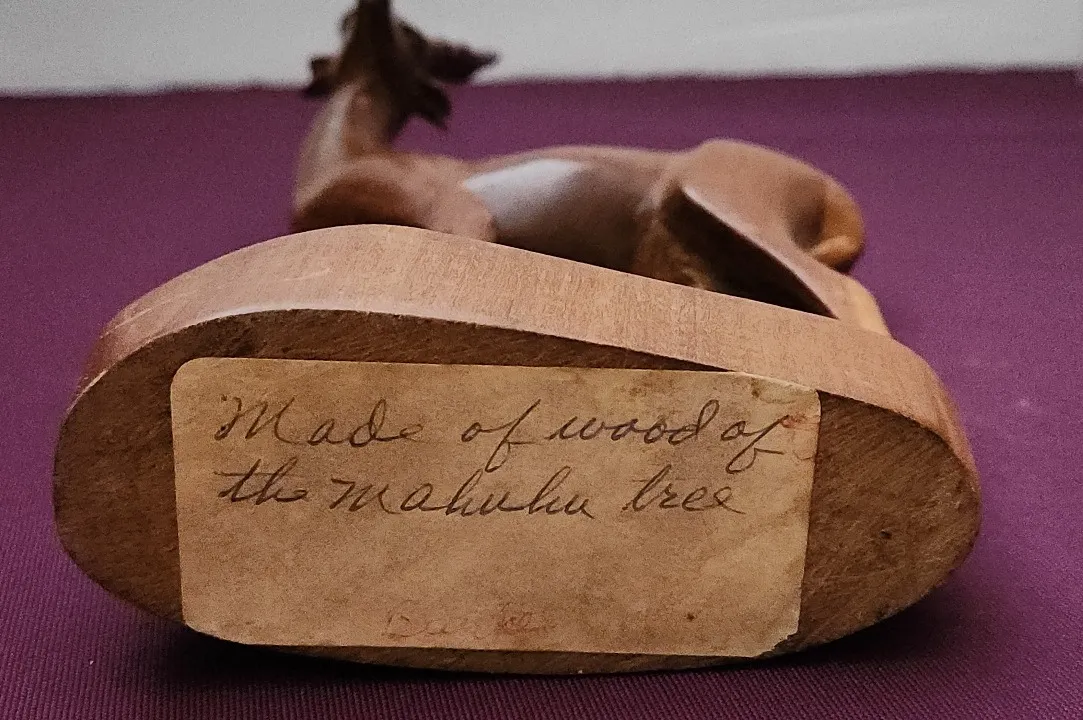 Made of wood of
the Mahuhu tree